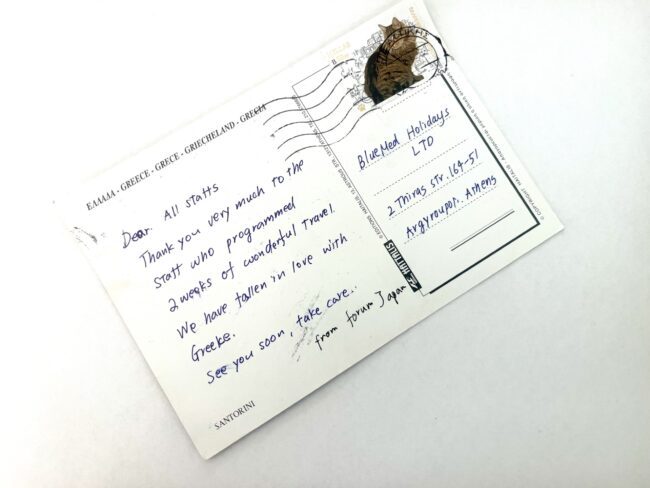 ΕΛΛΑΔΑ - GREECE - GRECE - GRIECHELAND - GRECIA
Dear. All staffs
Thank you very much to the
staff who programmed
2 weeks of wonderful Travel.
We have fallen in love with
Greeke.
See you soon, take care..
from forum Japan
SANTORINI
BlueMed Holidays
LTD
2 Thiras str. 164-51
Argyroupoi. Athens
HAITALIS